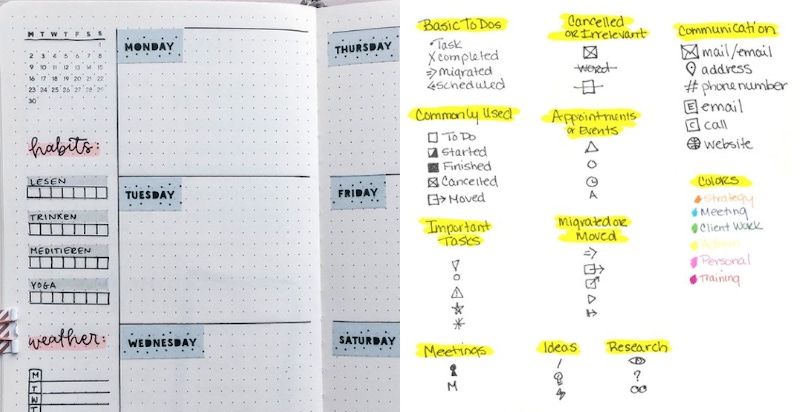 M T W T F S S
1
2 3 4 5 6 7 8
9 10 11 12 13 14 15
16 17 18 19 20 21 22
23 24 25 26 27 28 29
30
habits:
LESEN
TRINKEN
MEDITIEREN
YOGA
weather:
M
T
W
T
MONDAY
TUESDAY
WEDNESDAY
THURSDAY
FRIDAY
SATURDAY
Basic To Dos
Task
X completed
migrated
scheduled
Commonly Used
To Do
Started
Finished
Cancelled
Moved
Important
Tasks
Meetings
M
Cancelled
or Irrelevant
word
Appointments
or Events
A
Migrated or
Moved
Ideas
Research
?
Communication
mail/email
address
# phone number
E email
C call
website
Colors
Strategy
Meeting
Client Work
Admin
Personal
Training